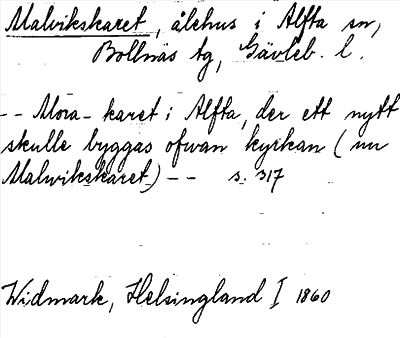 Malvikskaret, ålehus i Alfta sn,
Bollnäs tg, Gävleb. l.
-- Mora-karet i Alfta, der ett nytt
skulle byggas ofvan kyrkan (nu
Malwikskaret) -- s. 317
Widmark, Helsingland I 1860